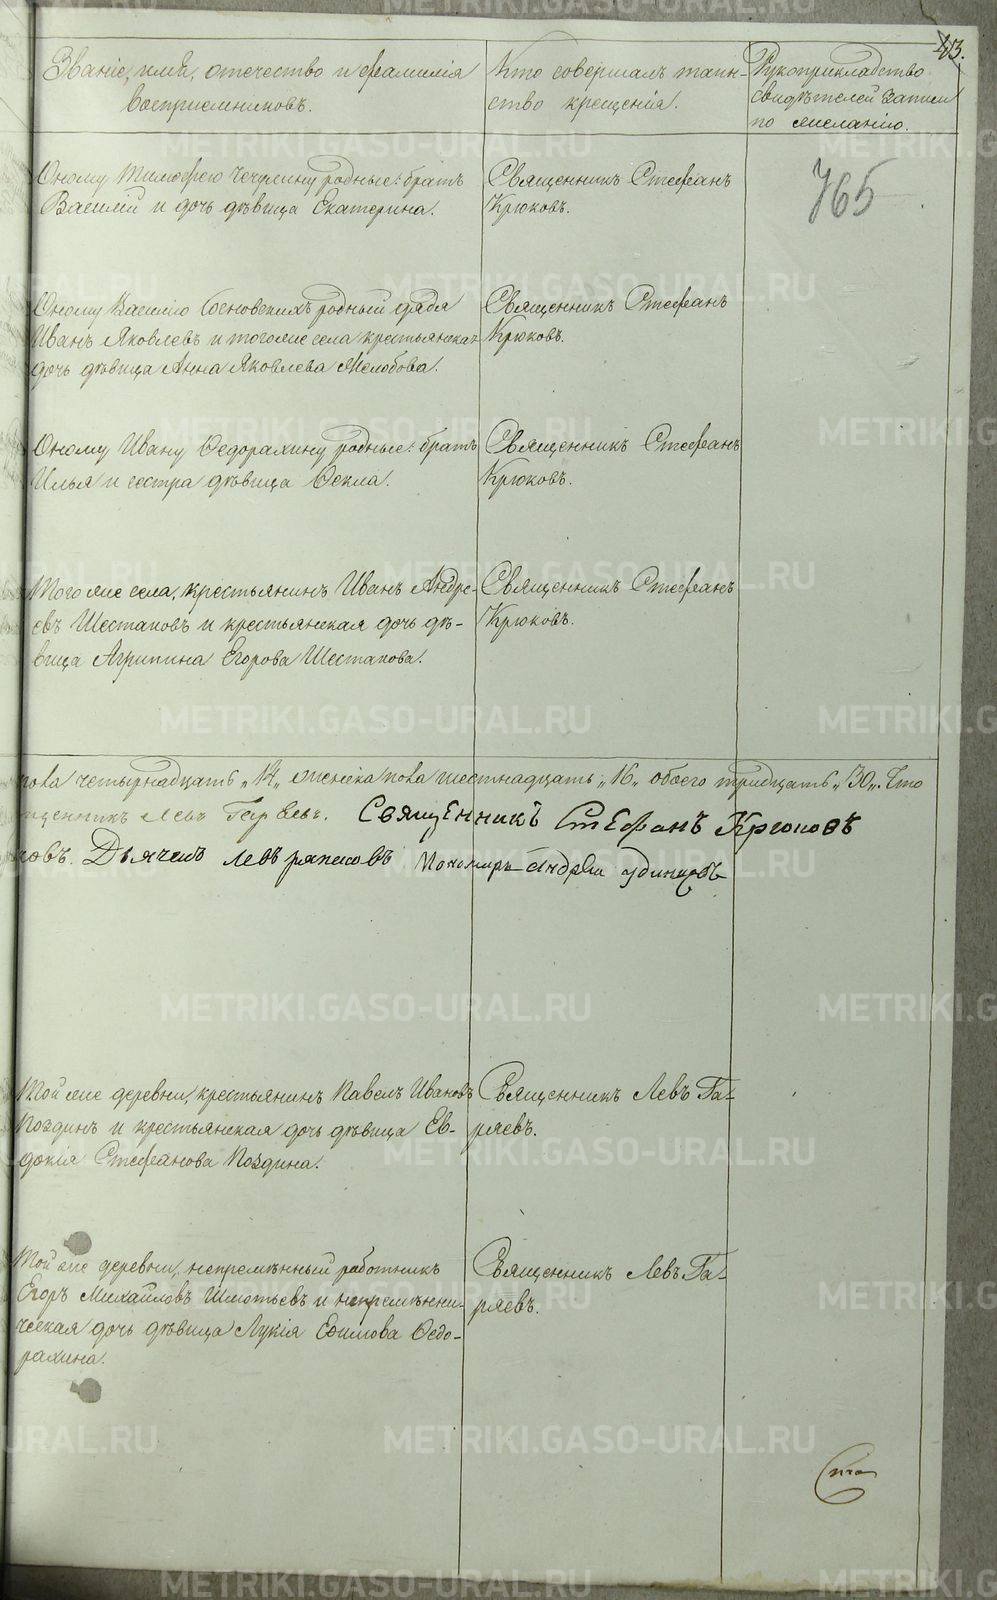 43.
Званіе, имя, отечество и фамилія
воспріемниковъ.
Кто совершалъ таин-
ство крещенія.
Рукоприкладство
свидѣтелей записи
по желанію.
765
Оному Тимоѳею родные: братъ
Василій и дочь дѣвица Екатерина.
Священникъ Стефанъ
Крюковъ.
Оному Василію Сосновскихъ родный дядя
Иванъ Яковлевъ и тогоже села крестьянская
дочь дѣвица Анна Яковлева Желобова.
Священникъ Стефанъ
Крюковъ.
Оному Ивану Ѳедорахину родные: братъ
Илья и сестра дѣвица Ѳекла.
Священникъ Стефанъ
Крюковъ.
Тогоже села, крестьянинъ Иванъ Андре-
евъ Шестаковъ и крестьянская дочь дѣ-
вица Агрипина Егорова Шестакова.
Священникъ Стефанъ
Крюковъ.
пола четырнадцать „14„ женска пола шестнадцать „16„ обоего тридцать „30„. Что
щенникъ Левъ Гаряевъ. Священникъ Стефанъ Крюковъ
ковъ. Дьячекъ Левъ Пономарь Андрей
Той же деревни, крестьянинъ Павелъ Ивановъ
Поздинъ и крестьянская дочь дѣвица Ев-
докія Стефанова Поздина.
Священникъ Левъ Га-
ряевъ.
Той же деревни, непремѣнный работникъ
Егоръ Михайловъ и непремѣнни-
ческая дочь дѣвица Лукія Ефимова Ѳедо-
рахина.
Священникъ Левъ Га-
ряевъ.
METRIKI.GASO-URAL.RU